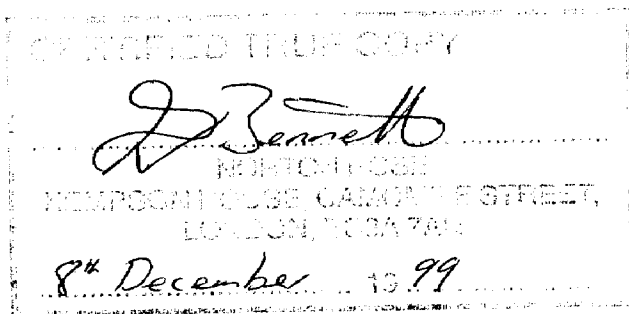 CERTIFIED TRUE COPY
D Bennett
NORTON ROSE
KEMPSON HOUSE, CAMOMILE STREET,
LONDON, EC3A 7AN
8th December 1999